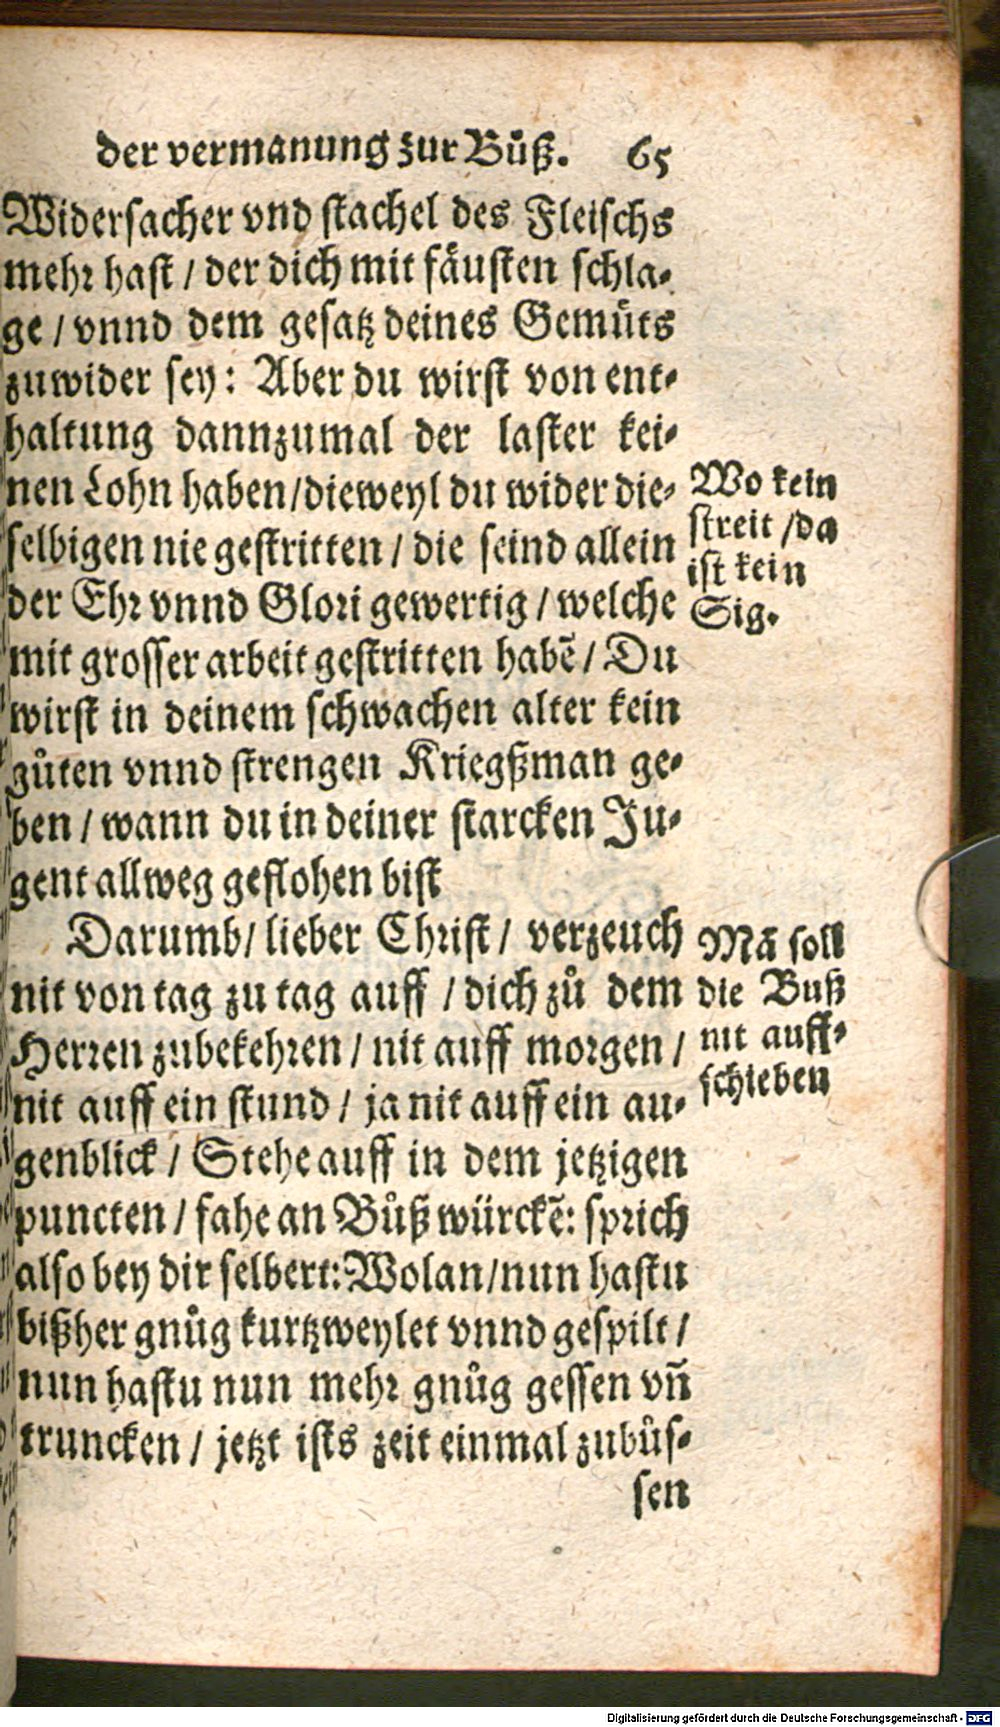 der vermanung zur Bůß. 65
Widersacher vnd stachel des Fleischs
mehr hast / der dich mit fäusten schla-
ge / vnnd dem gesatz deines Gemüts
zuwider sey: Aber du wirst von ent-
haltung dannzumal der laster kei-
nen Lohn haben/dieweyl du wider die-
selbigen nie gestritten / die seind allein
der Ehr vnnd Glori gewertig / welche
mit grosser arbeit gestritten habē / Du
wirst in deinem schwachen alter kein
gůten vnnd strengen Kriegßman ge-
ben / wann du in deiner starcken Ju-
gent allweg geflohen bist
Wo kein
streit /da
ist kein
Sig.
Darumb/ lieber Christ / verzeuch
nit von tag zu tag auff / dich zů dem
Herren zubekehren / nit auff morgen /
nit auff ein stund / ja nit auff ein au-
genblick / Stehe auff in dem jetzigen
puncten / fahe an Bůß würckē: sprich
also bey dir selbert: Wolan/nun hastu
bißher gnůg kurtzweylet vnnd gespilt /
nun hastu nun mehr gnůg gessen vñ
truncken / jetzt ists zeit einmal zubůs-
sen
Mā soll
die Buß
nit auff-
schieben
Digitalisierung gefördert durch die Deutsche Forschungsgemeinschaft - DFG